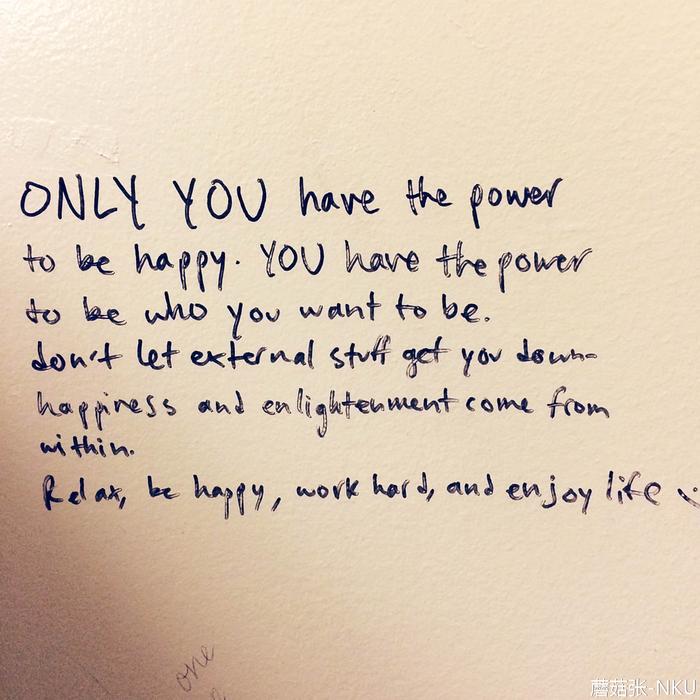 ONLY YOU have the power
to be happy. YOU have the power
to be who you want to be.
don't let external stuff get you down-
happiness and enlightenment come from
within.
Relax, be happy, work hard, and enjoy life :)
one
蘑菇张-NKU